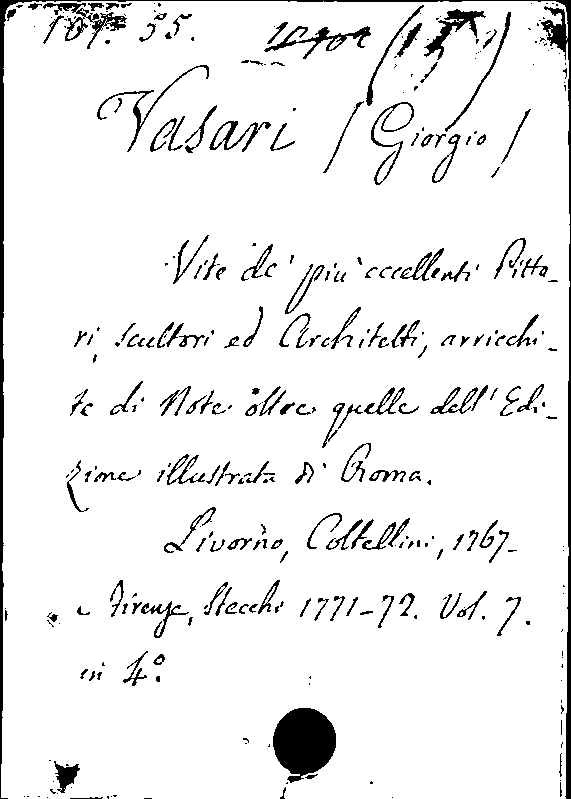 101. 55. (15)
Vasari / Giorgio /
Vite de' più eccellenti Pitto-
ri, scultori ed Architetti, arricchi-
te di Note oltre quelle dell' Edi-
zione illustrata di Roma.
Livorno, Coltellini, 1767-
e Firenze, Stecchi 1771-72. Vol. 7.
in 4°.